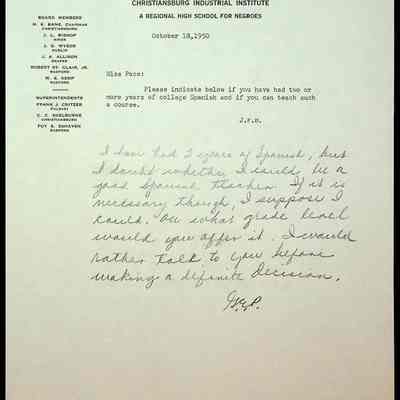 CHRISTIANSBURG INDUSTRIAL INSTITUTE
A REGIONAL HIGH SCHOOL FOR NEGROES
BOARD MEMBERS
CHRISTIANSBURG
J. L. BISHOP
DUBLIN
J. A. ALLISON
DRAPER
ROBERT ST. CLAIR, JR.
RADFORD
RADFORD
SUPERINTENDENTS
FRANK J. CRITZER
PULASKI
C. E. SHELBURNE
CHRISTIANSBURG
RADFORD
October 18, 1950
Miss Pace:
Please indicate below if you have had two or
more years of college Spanish and if you can teach such
a course.
I have had 2 years of Spanish, but
I doubt whether I could be a
good Spanish teacher. If it is
necessary though, I suppose I
could. On what grade level
would you offer it. I would
rather talk to you before
making a definite decision.